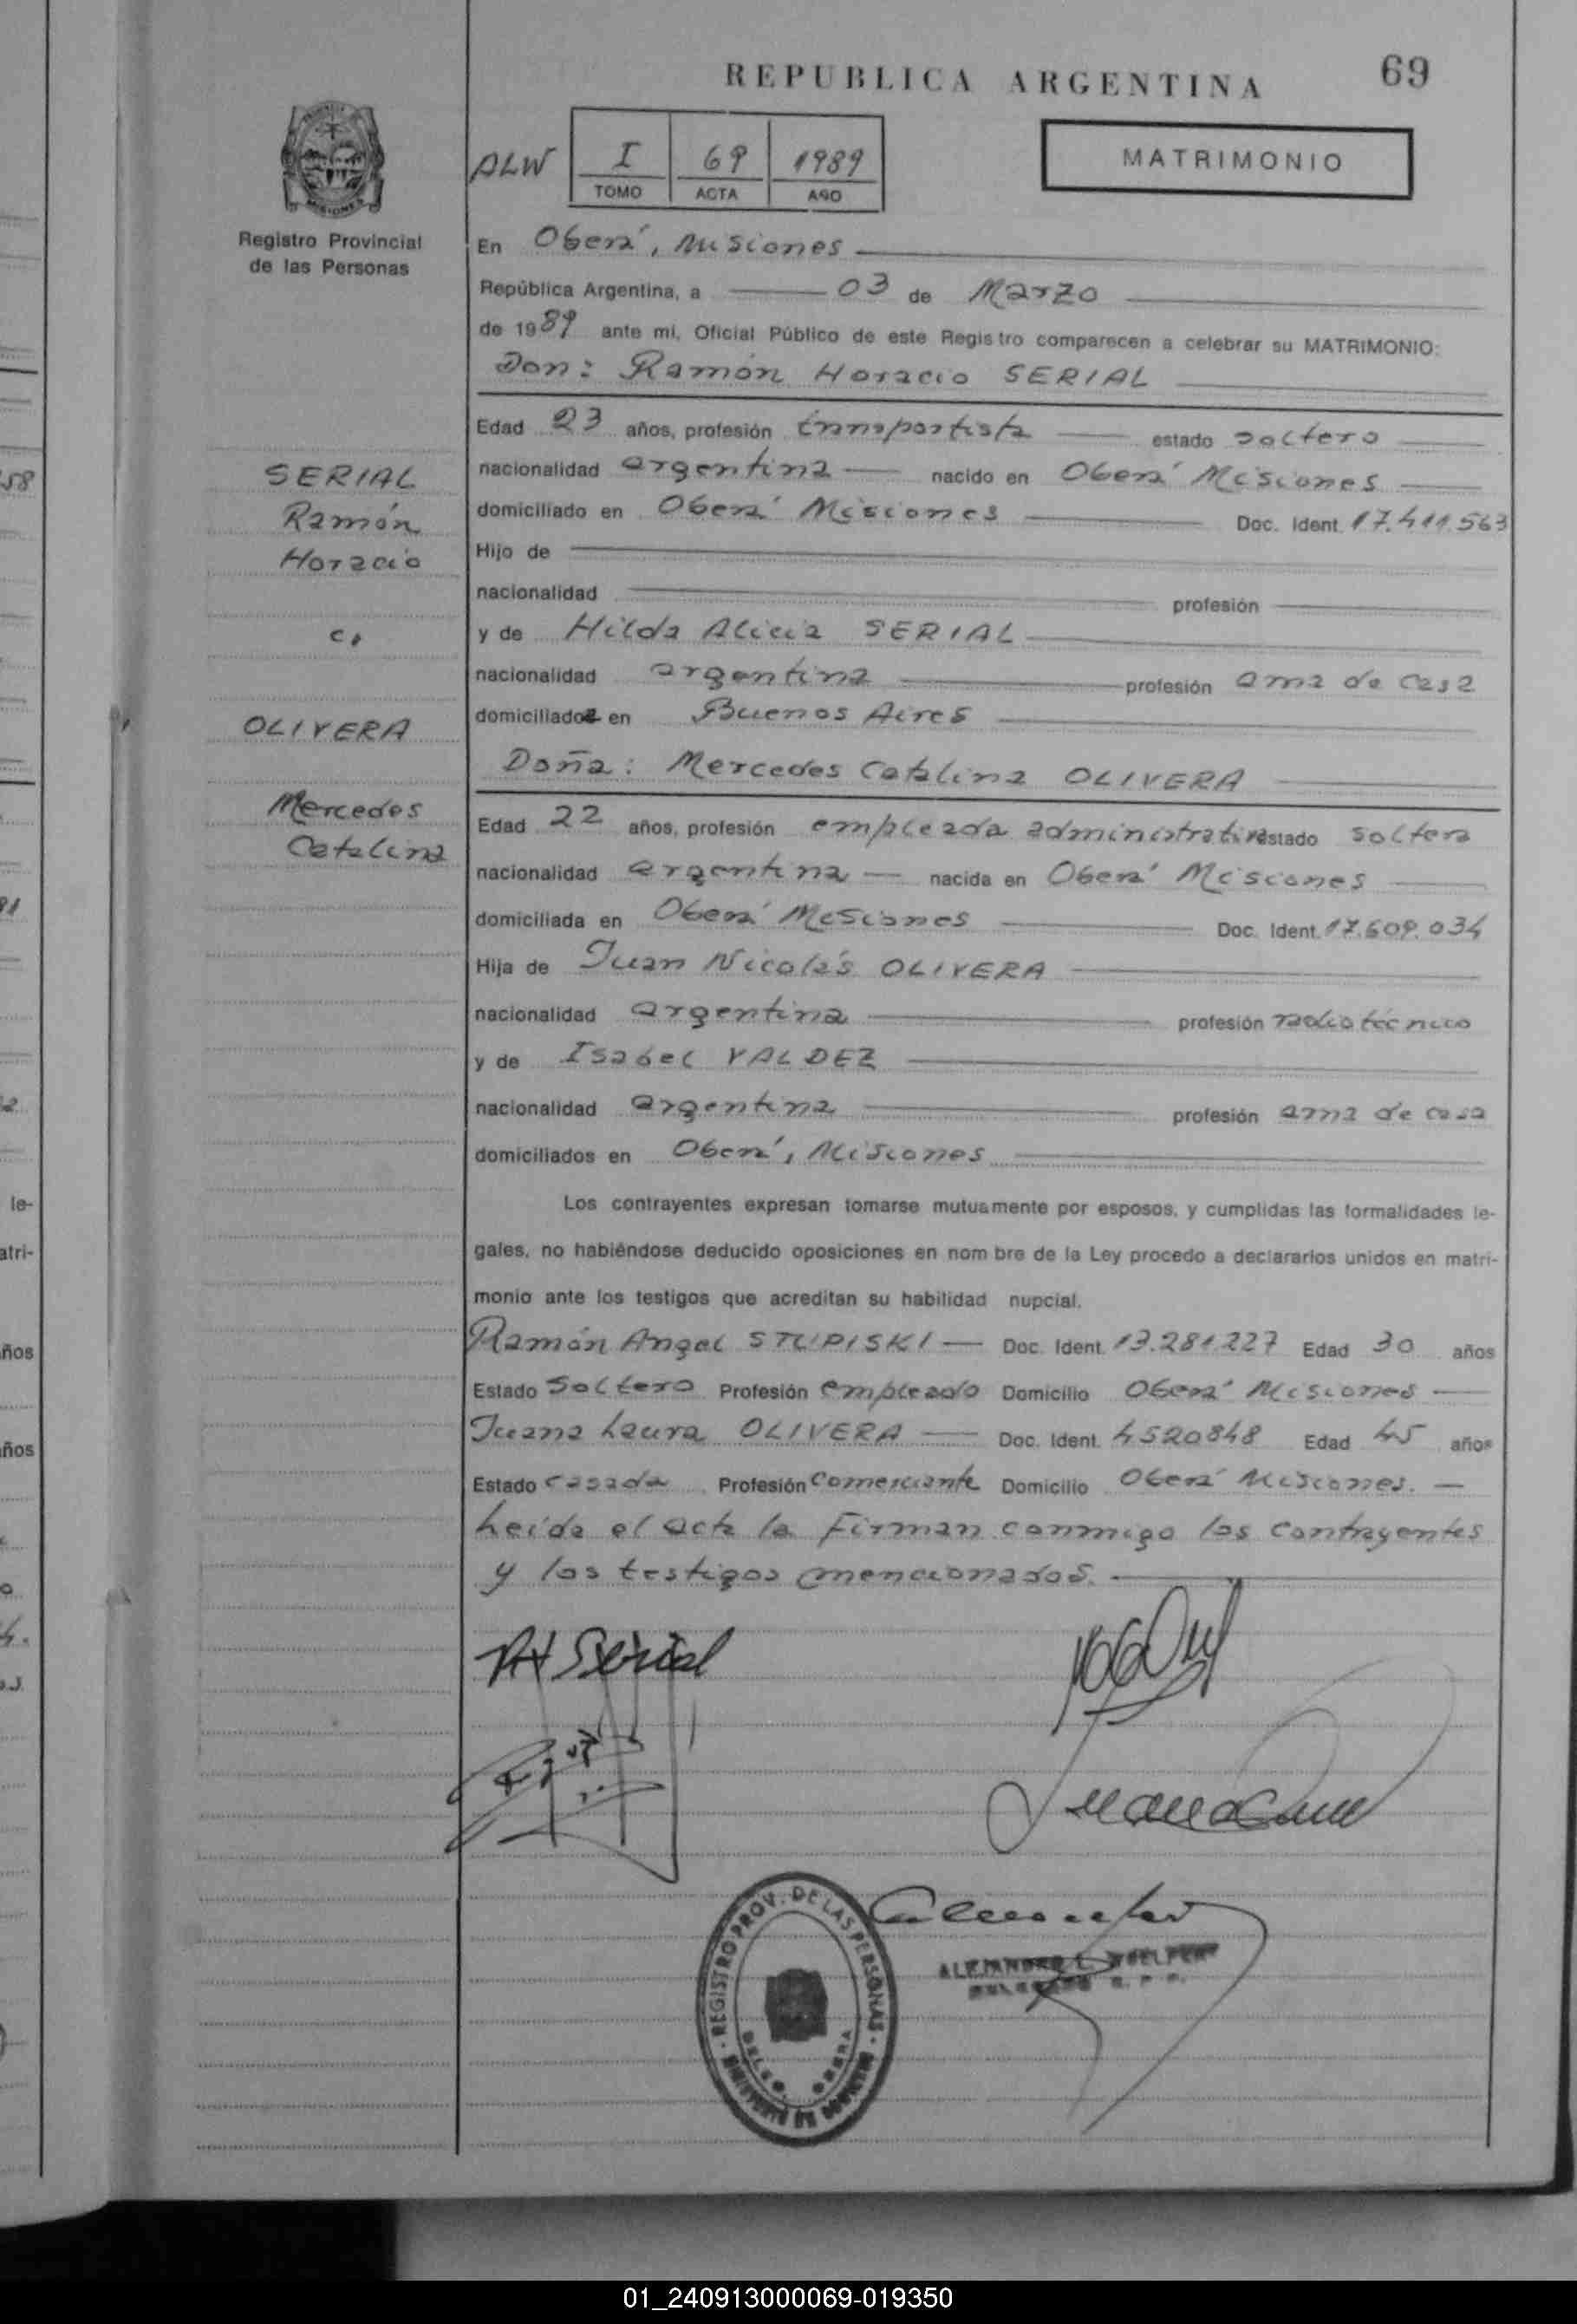 REPUBLICA ARGENTINA
69
MATRIMONIO
MISIONES
Registro Provincial
de las Personas
ALW
I 69 1989
TOMO ACTA AÑO
En Oberá, Misiones
República Argentina, a 03 de Marzo
de 1989 ante mi, Oficial Público de este Registro comparecen a celebrar su MATRIMONIO:
Don: Ramón Horacio SERIAL
Edad 23 años, profesión transportista estado soltero
nacionalidad argentina nacido en Oberá Misiones
domiciliado en Oberá Misiones Doc. Ident. 17.411.563
Hijo de
nacionalidad profesión
y de Hilda Alicia SERIAL
nacionalidad argentina profesión ama de casa
domiciliados en Buenos Aires
Doña: Mercedes Catalina OLIVERA
Edad 22 años, profesión empleada administrativa estado soltera
nacionalidad argentina nacida en Oberá Misiones
domiciliada en Oberá Misiones Doc. Ident. 17.609.034
Hija de Juan Nicolás OLIVERA
nacionalidad argentina profesión radiotécnico
y de Isabel VALDEZ
nacionalidad argentina profesión ama de casa
domiciliados en Oberá, Misiones
SERIAL
Ramón
Horacio
c.
OLIVERA
Mercedes
Catalina
Los contrayentes expresan tomarse mutuamente por esposos, y cumplidas las formalidades le-
gales, no habiéndose deducido oposiciones en nombre de la Ley procedo a declararlos unidos en matri-
monio ante los testigos que acreditan su habilidad nupcial.
Ramón Angel STUPISKI Doc. Ident. 13.281.227 Edad 30 años
Estado Soltero Profesión empleado Domicilio Oberá Misiones
Juana Laura OLIVERA Doc. Ident. 4520848 Edad 45 años
Estado casada Profesión comerciante Domicilio Oberá Misiones.
Leída el acta la Firman conmigo los contrayentes
y los testigos mencionados.
RH Serial
REGISTRO PROV. DE LAS PERSONAS
ALEJANDRO L.
58
le-
atri-
años
años
01_240913000069-019350